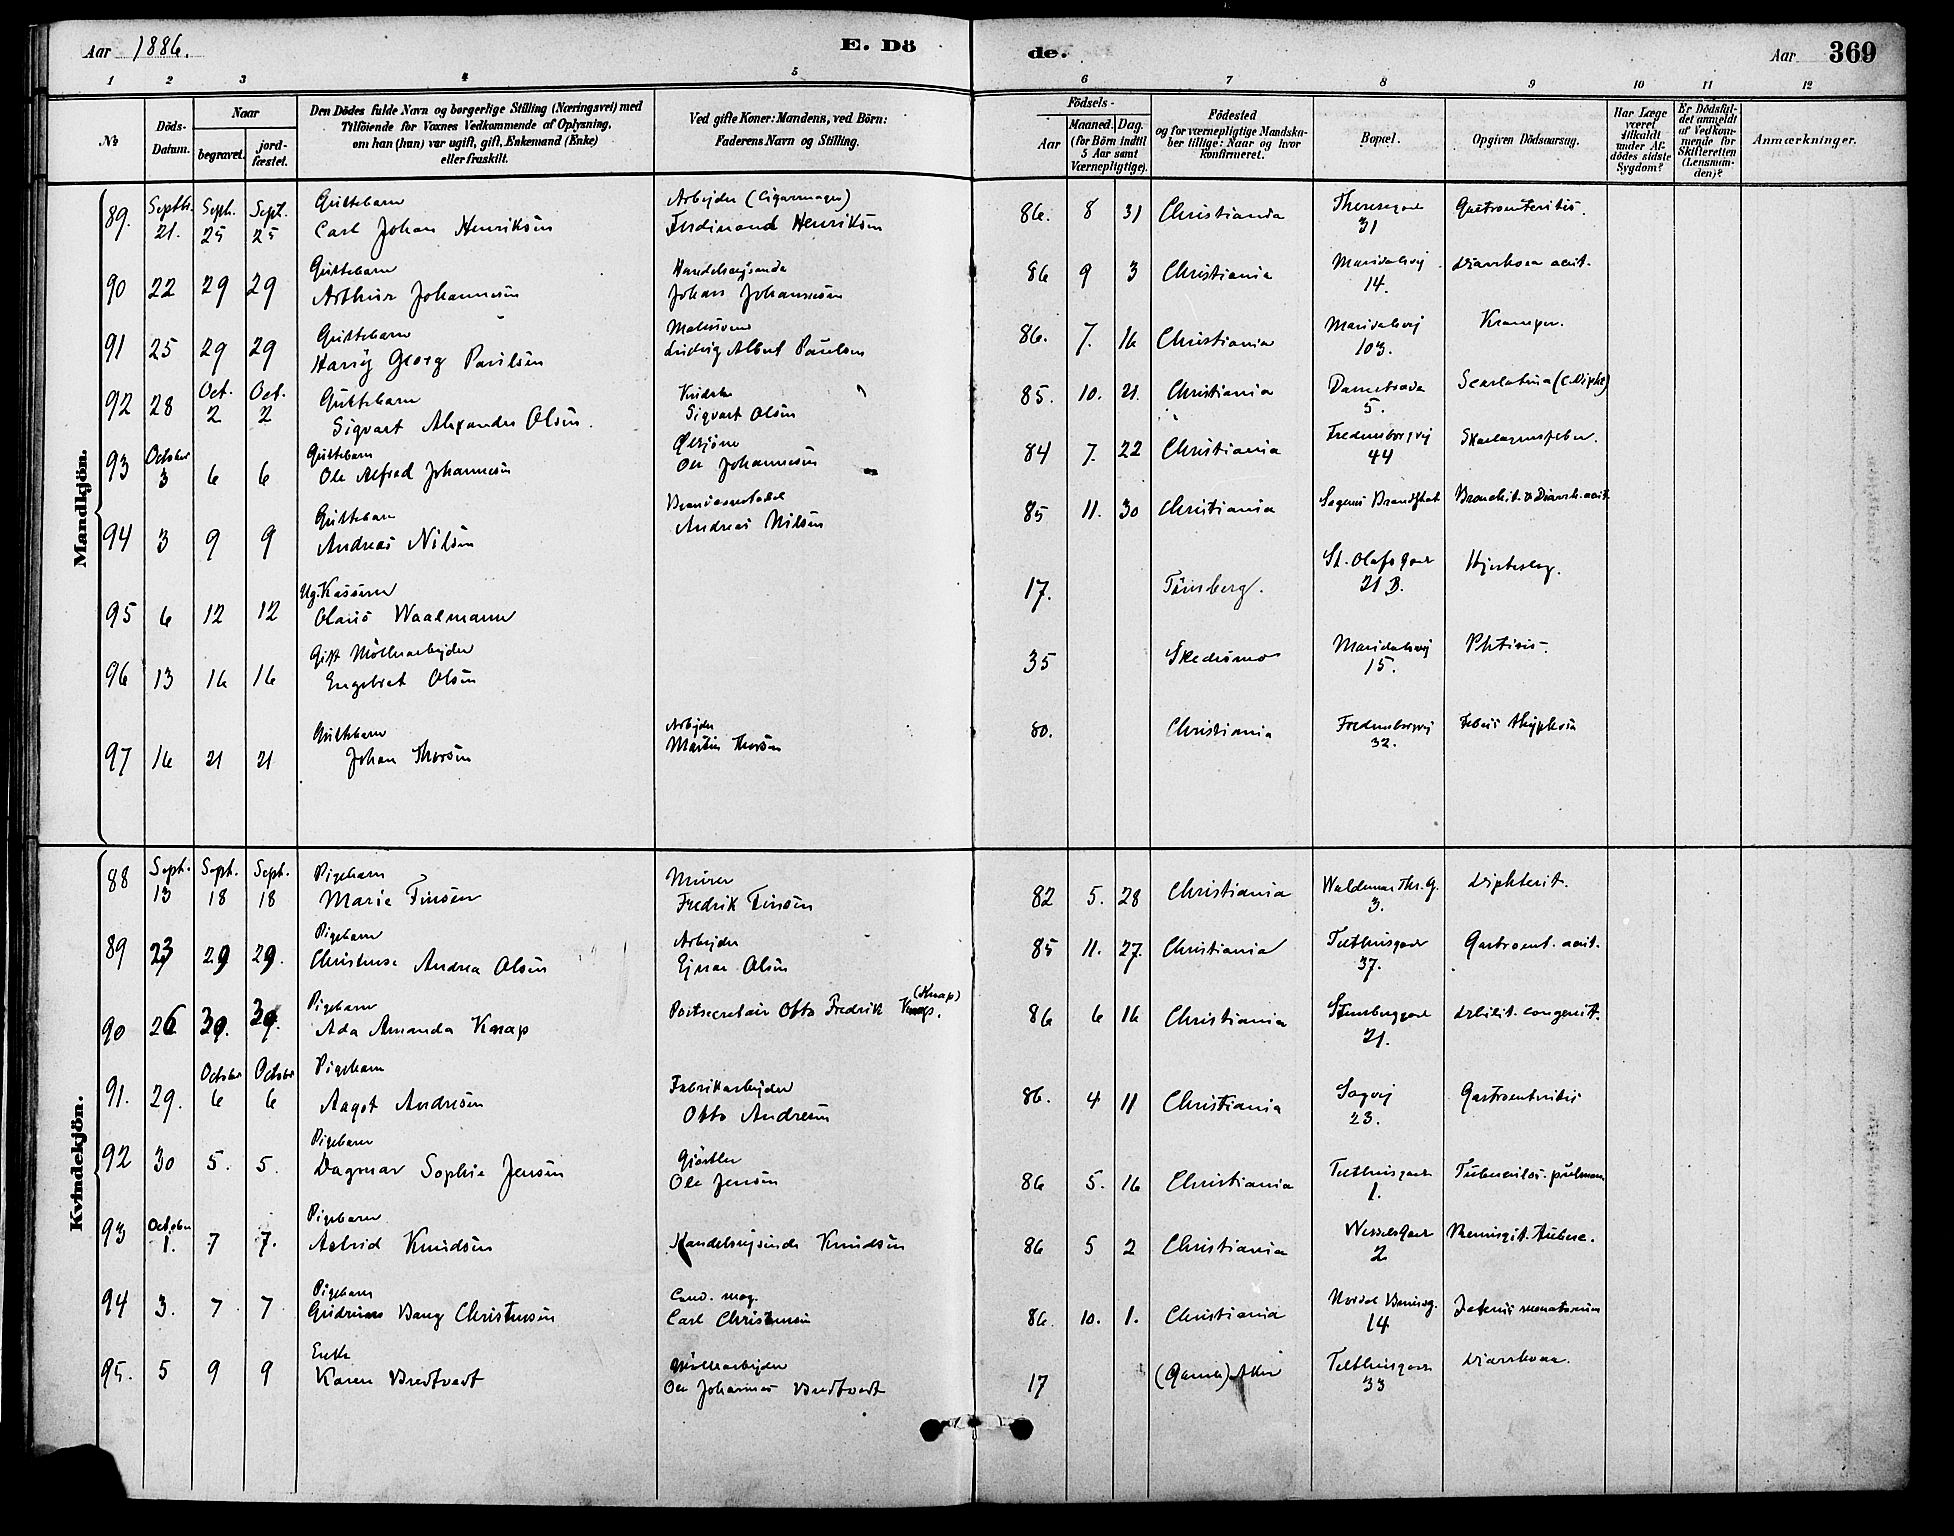 Aar 1886.
E. Dö
de.
Aar 369
1 2 3 4 5 6 7 8 9 10 11 12
№
Döds-Datum.
Naar
begravet.
jord-fæstet.
Den Dödes fulde Navn og borgerlige Stilling (Næringsvei) med
Tilföiende for Voxnes Vedkommende af Oplysning,
om han (hun) var ugift, gift, Enkemand (Enke)
eller fraskilt.
Ved gifte Koner: Mandens, ved Börn:
Faderens Navn og Stilling.
Födsels-
Aar
Maaned. Dag.
(for Börn indtil
5 Aar samt
Værnepligtige).
Födested
og for værnepligtige Mandska-
ber tillige: Naar og hvor
konfirmeret.
Bopæl.
Opgiven Dödsaarsag.
Har Læge
været
tilkaldt
under Af-
dödes sidste
Sygdom?
Er Dödsfal-
det anmeldt
af Vedkom-
mende for
Skifteretten
(Lensman-
den)?
Anmærkninger.
Mandkjön.
89. Septbr. 21. Sept. 25 Sept. 25 Guttebarn Carl Johan Henriksen Arbejder (Cigarmager) Ferdinand Henriksen 86. 8 31 Christiania Theresegade 31 Gastroenteritis.
90 22 29 29 Guttebarn Arthur Johannesen Johan Johannesen 86 9 3 Christiania Maridalsvej 14. Diarrhoea acut.
91 25 29 29 Guttebarn Harry Georg Paulsen Malersvend Ludvig Albert Paulsen 86. 7. 16 Christiania Maridalsvej 103. Kramper.
92 28 Oct. 2 Oct. 2 Guttebarn Sigvart Alexander Olsen. Sigvart Olsen 85. 10. 21. Christiania 5. Scarlatina (c. Dipht)
93 October 3 6 6 Guttebarn Ole Alfred Johannesen Ole Johannesen 84 7. 22 Christiania Fredensborgvej 44 Skarlagensfeber.
94 3 9 9 Guttebarn Andreas Nilsen Andreas Nilsen 85 11. 30 Christiania Sagenes Brandstat Bronchit. & Diarrh. acut.
95 6 12 12 Ug. Olaus Waalmann 17. Tönsberg. St. Olafs Gade 21 B. Hjerteslag.
96 13 16 16 Gift Möllearbejder Engebret Olsen 35 Skedsmo Maridalsvej 15. Phtisis.
97 16 21 21 Guttebarn Johan Thorsen Arbejder Martin Thorsen 80. Christiania Fredensborgvej 32. Febris thyphosa
Kvindekjön.
88 Sept. 13 Sept. 18 Sept. 18 Pigebarn Marie Finsen Murer Fredrik Finsen 82 5. 28 Christiania Waldemar Thr. G. 3. Diphterit.
89 23 29 29. Pigebarn Christense Andrea Olsen Arbejder Ejnar Olsen 85 11. 27. Christiania Telthusgade 37. Gastroent. acut.
90 26 30. 30. Pigebarn Ada Amanda Knap Postsecretair Otto Fredrik Knap. (Knap) 86 6 16 Christiania Stensberggade 21. Debilit. congenit.
91. 29. October 6 October 6 Pigebarn Aagot Andresen Fabrikarbejder Otto Andresen 86. 4 11 Christiania Sagvej 23. Gastroenteritis
92 30 5. 5. Pigebarn Dagmar Sophie Jensen Gjörtler Ole Jensen 86 5. 16 Christiania Telthusgade 1. Tuberculos. pulmon
93 October 1. 7 7. Pigebarn Astrid Knudsen Handelsrejsende Knudsen 86 5 2 Christiania Wessels Gade 2 Meningit. tuberc.
94 3. 7 7 Pigebarn Gudrun Bang Christensen Cand. mag. Carl Christensen 86. 10. 1. Christiania 14 Icterus neonatorum
95. 5 9 9 Enke Karen Bredtvedt Möllearbejder Ole Johannes Bredtvedt 17 (Gamle) Aker Telthusgade 33 Diarrhoea.